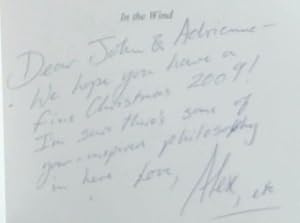 In the Wind
Dear John & Adrienne –
We hope you have a
fine Christmas 2009!
I'm sure there's some of
your-inspired philosophy
in here. Love,
Alex, etc